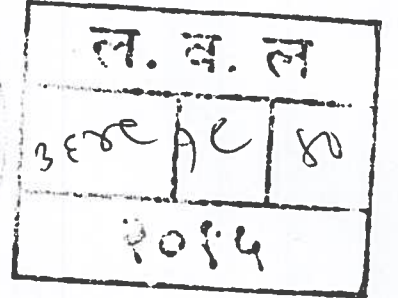 ल. व. ल
३६४८ १८ ४०
२०१५